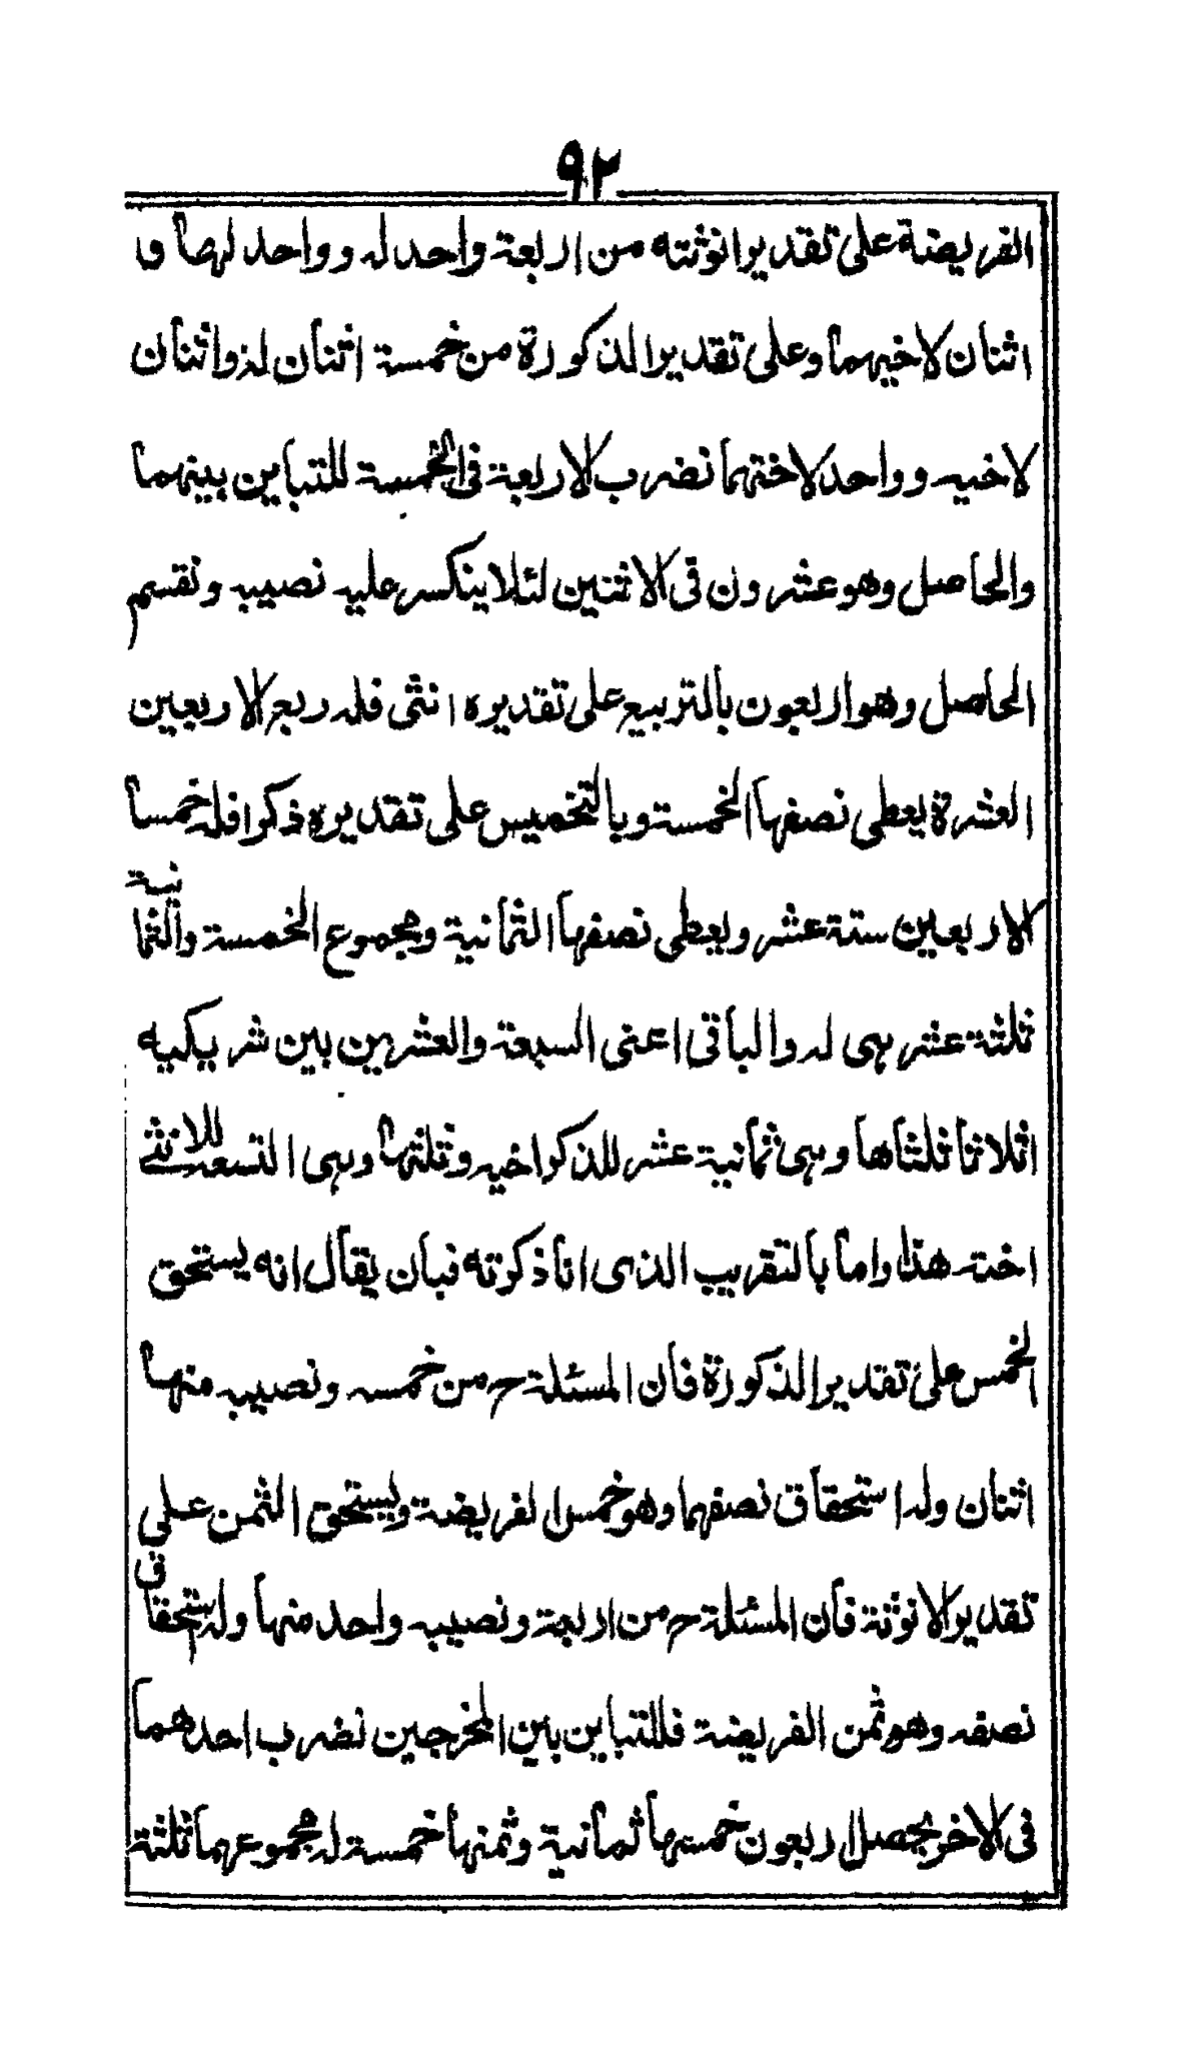 ٩٢
الفريضة على تقدير انوثته من اربعة واحد له وواحد لهما و
اثنان لاخيهما وعلى تقدير الذكورة من خمسة اثنان له واثنان
لاخيه وواحد لاختهما نضرب الاربعة فى الخمسة للتباين بينهما
والحاصل وهو عشرون فى الاثنين لئلا ينكسر عليه نصيبه ونقسم
الحاصل وهو اربعون بالتربيع على تقديره انثى فله ربع الاربعين
العشرة يعطى نصفها الخمسة وبالتخميس على تقديره ذكرا فله خمسا
الاربعين ستة عشر ويعطى نصفها الثمانية ومجموع الخمسة والثمانية
ثلثة عشر هى له والباقى اعنى السبعة والعشرين بين شريكيه
اثلاثا ثلثاها وهى ثمانية عشر للذكر اخيه وثلثها وهى التسعة للانثى
اخته هذا واما بالتقريب الذى انا ذكرته فبان يقال انه يستحق
الخمس على تقدير الذكورة فان المسئلة ح من خمسه ونصيبه منها
اثنان وله استحقاق نصفهما وهو خمس الفريضة ويستحق الثمن على
تقدير الانوثة فان المسئلة ح من اربعة ونصيبه واحد منها وله استحقاق
نصفه وهو ثمن الفريضة فللتباين بين المخرجين نضرب احدهما
فى الاخر يحصل اربعون خمسها ثمانية وثمنها خمسة له مجموعهما ثلثة